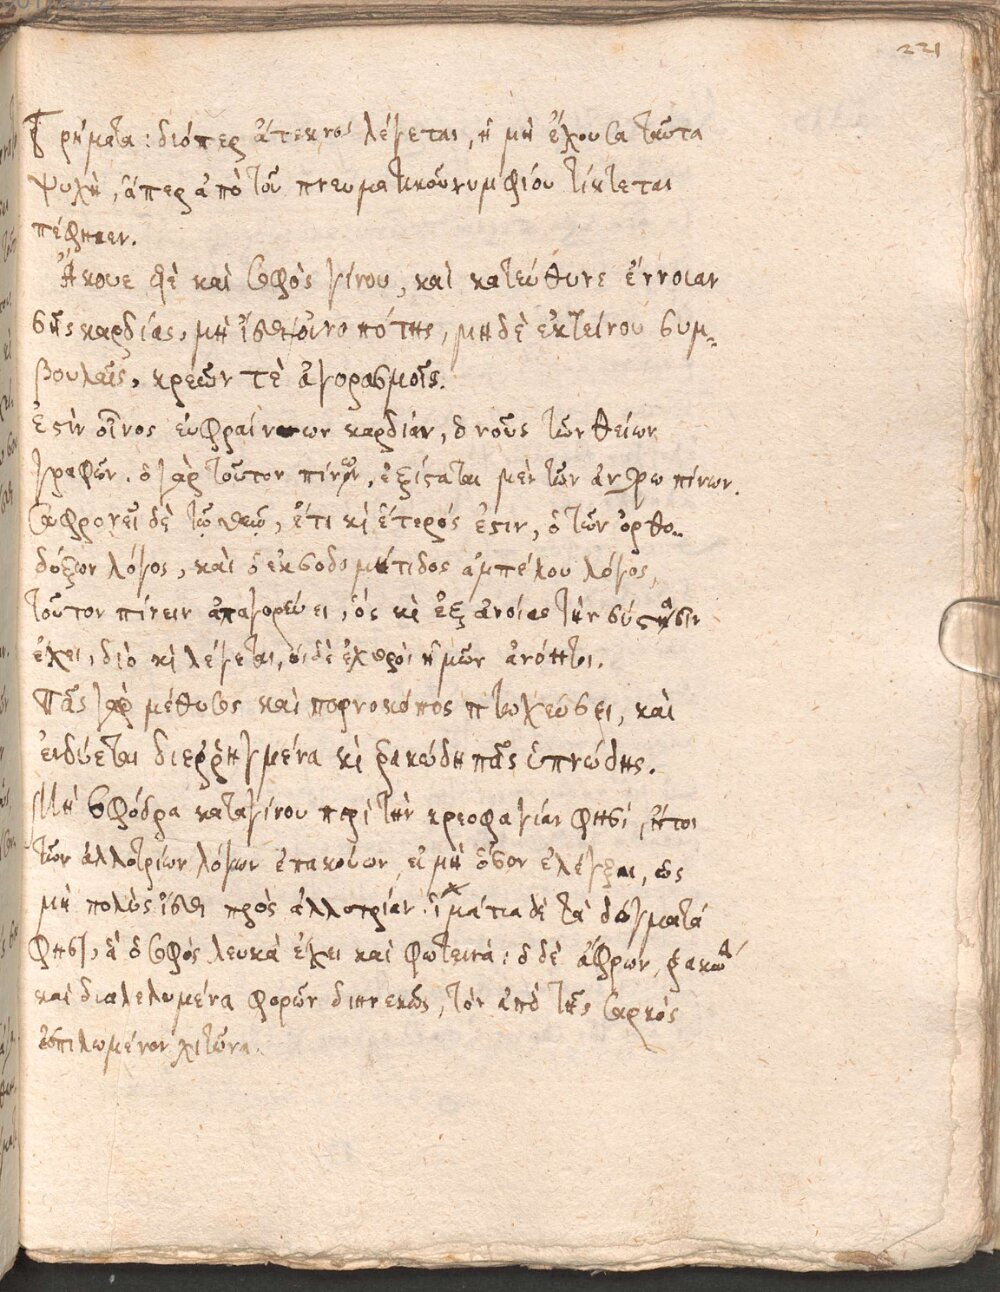 221
τρήματα: διόπερ ἄτεκνος λέγεται, ἡ μὴ ἔχουσα ταῦτα
ψυχὴ, ἅπερ ἀπὸ τοῦ πνευματικοῦ νυμφίου τίκτεται
πέφηνεν.
Ἄκουε υἱὲ καὶ σοφὸς γίνου, καὶ κατεύθυνε ἔννοιαν
σῆς καρδίας, μὴ ἴσθι οἰνοπότης, μηδὲ ἐκτείνου συμ-
βουλαῖς, κρεῶν τὲ ἀγορασμοῖς.
Ἔστιν οἶνος εὐφραίνων καρδίαν, ὁ νοῦς τῶν θείων
γραφῶν. ὁ γὰρ τοῦτον πίνων, ἐξίσταται μὲν τῶν ἀνθρωπίνων.
σωφρονεῖ δὲ τῷ θεῷ, ἔτι κὶ ἕτερός ἐστιν, ὁ τῶν ὀρθο-
δόξων λόγος, καὶ ὁ ἐκ σοδομήτιδος ἀμπέλου λόγος,
τοῦτον πίνειν ἀπαγορεύει, ὃς κὶ ἐξ ἀνοίας τὴν σύστασιν
ἔχει, διὸ κὶ λέγεται, οἱ δὲ ἐχθροὶ ἡμῶν ἀνόητοι.
Πᾶς γὰρ μέθυσος καὶ πορνοκόπος πτωχεύσει, καὶ
ἐνδύεται διερρηγμένα κὶ ῥακώδη πᾶς ὑπνώδης.
Μὴ σφόδρα καταγίνου περὶ τὴν κρεοφαγίαν φησί, ἤτοι
τῶν ἀλλοτρίων λόγων ἐπακούων, εἰ μὴ ὅσον ἐλέγξαι, ὡς
μὴ πολὺς ἴσθι πρὸς ἀλλοτρίαν. ἱμάτια δὲ τὰ δόγματά
φησι, ἃ ὁ σοφὸς λευκὰ ἔχει καὶ φωτεινά: ὁ δὲ ἄφρων, ῥακώδη
καὶ διαλελυμένα φορῶν διηνεκῶς, τὸν ἀπὸ τῆς σαρκός
ἐσπιλωμένον χιτῶνα.